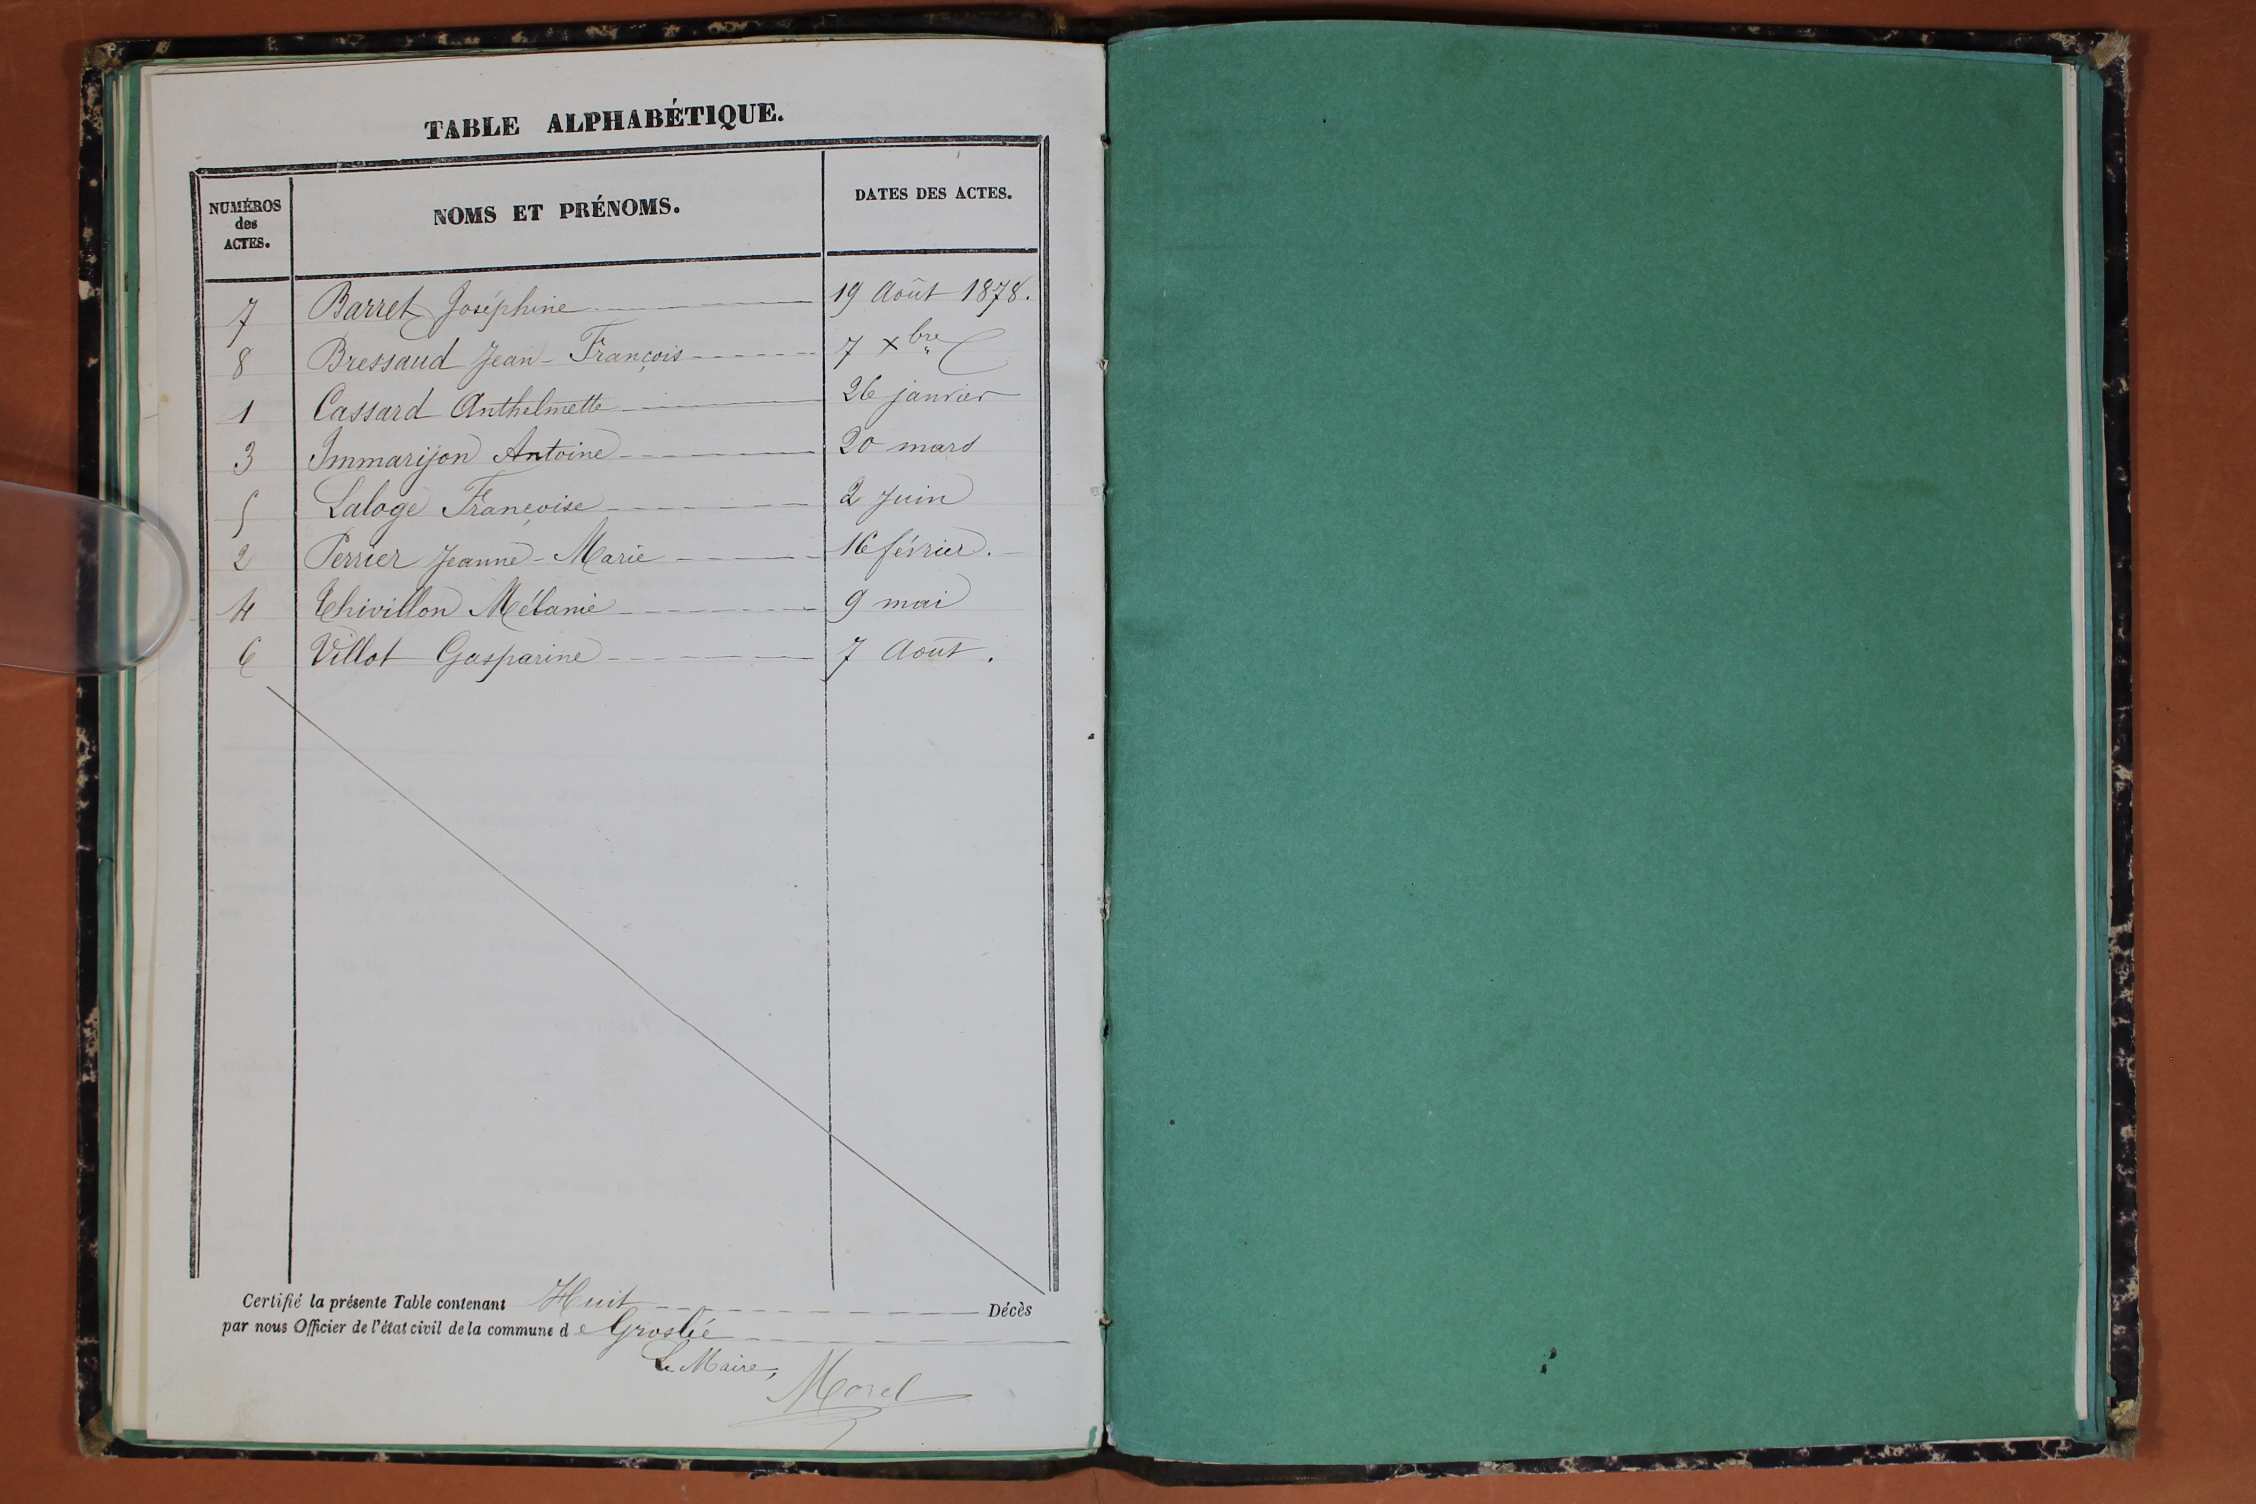 TABLE ALPHABÉTIQUE.
NUMÉROS des ACTES. NOMS ET PRÉNOMS. DATES DES ACTES.
7 Barret Joséphine 19 Août 1878.
8 Bressaud Jean-François 7 Xbre "
1 Cassard Anthelmette 26 janvier
3 Immarijon Antoine 20 mars
5 Laloge Françoise 2 Juin
2 Perrier Jeanne-Marie 16 février.
4 Thivillon Mélanie 9 mai
6 Villot Gasparine 7 Août.
Certifié la présente Table contenant Huit Décès
par nous Officier de l'état civil de la commune de Groslée
Le Maire,
Morel